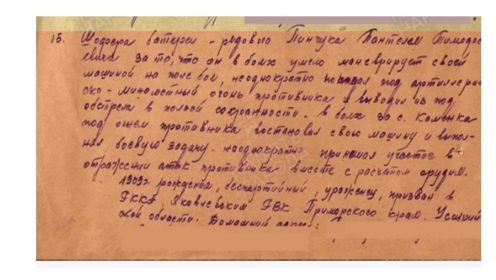 15. Шофера батареи - рядового Пинчука Пантелея Тимофе
евича за то, что он в боях умело маневрирует своей
машиной на поле боя, неоднократно попадал под артиллерий
ско-минометный огонь противника и выводил из под
обстрела в полной сохранности. В боях за с. Каменка
под огнем противника востановил свою машину и выпол-
нял боевую задачу. неоднократно принимал участие в
отражении атак противника вместе с расчетом орудия.
1909г рождения, беспартийный, урожен, призван в
РККА, Яковлевским РВК Приморского края. Уссурий
ской области. Домашний адрес: